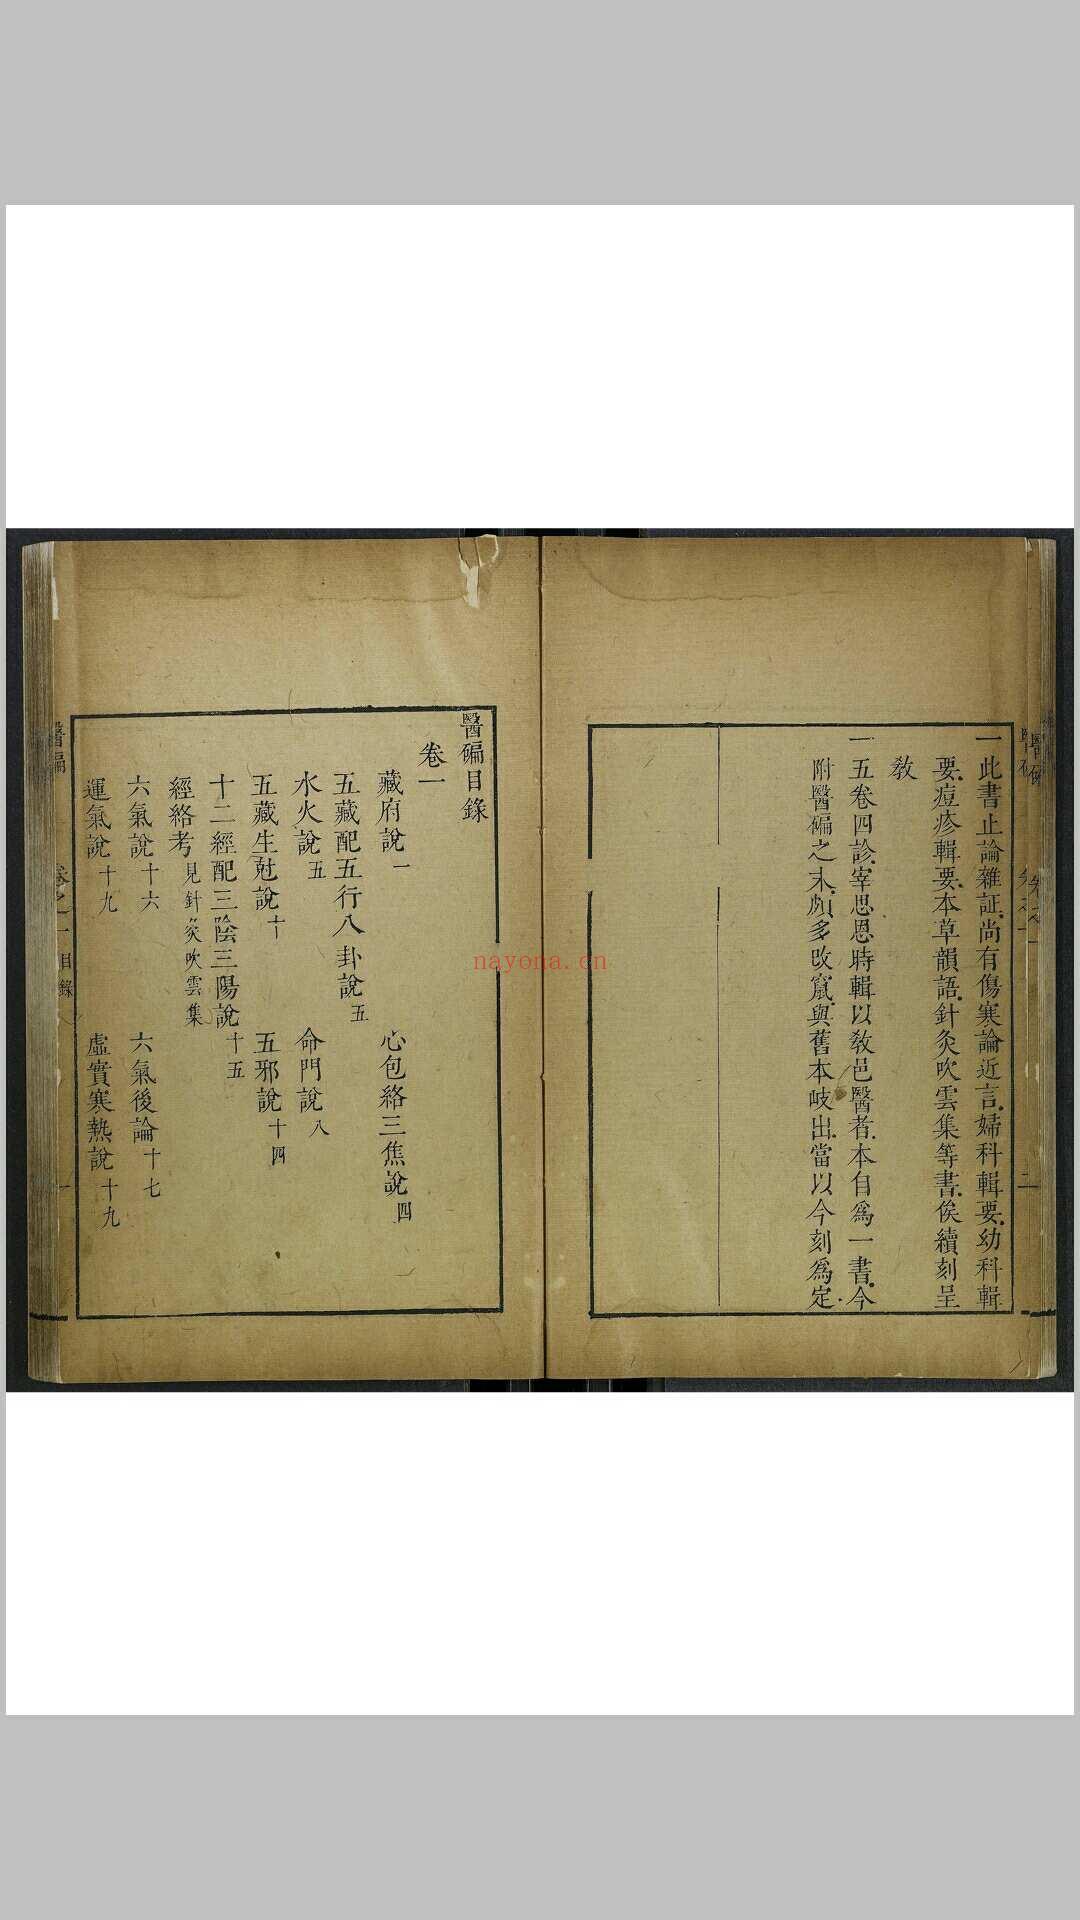 一此書止論雜証.尚有傷寒論近言.婦科輯要.幼科輯
要.痘疹輯要.本草韻語.針灸吹雲集等書.俟續刻呈
教
一五卷四診.宰思恩時輯以教邑醫者.本自為一書.今
附醫碥之末.頗多改竄.與舊本岐出.當以今刻為定.
醫碥目錄
卷一
藏府說 一 心包絡三焦說 四
五藏配五行八卦說 五
水火說 五 命門說 八
五藏生尅說 十 五邪說 十四
十二經配三陰三陽說 十五
經絡考 見針灸吹雲集
六氣說 十六 六氣後論 十七
運氣說 十九 虛實寒熱說 十九
醫碥 卷之一 目錄 一
nayona.cn